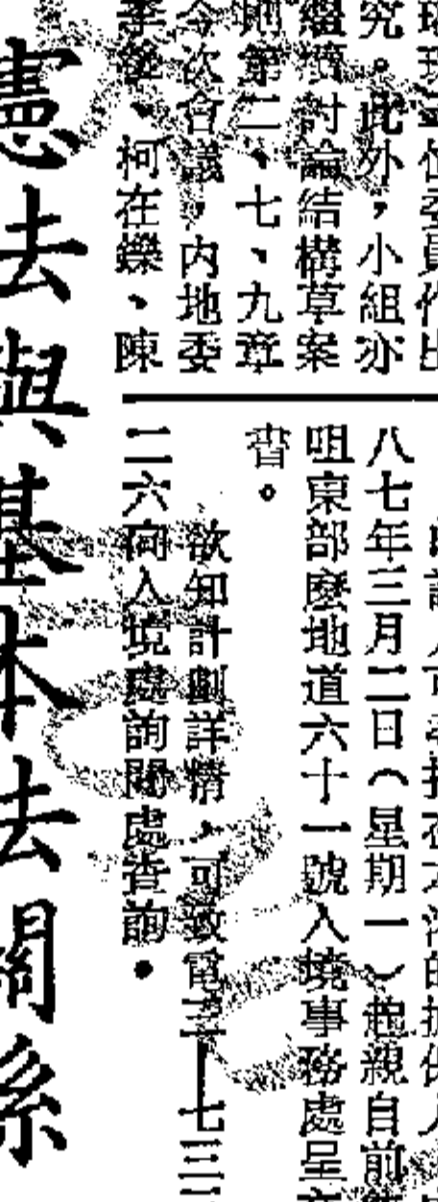 究。此外，小組亦
繼續討論結構草案
地第二、七、九章
今次會議，内地委
李後、柯在鑠、陳
八七年三月二日（星期一）起親自前
咀東部麽地道六十一號入境事務處呈
書。
欲知計劃詳情，可致電三—七三三
二六向入境處詢問處查詢。
憲法與基本法關係